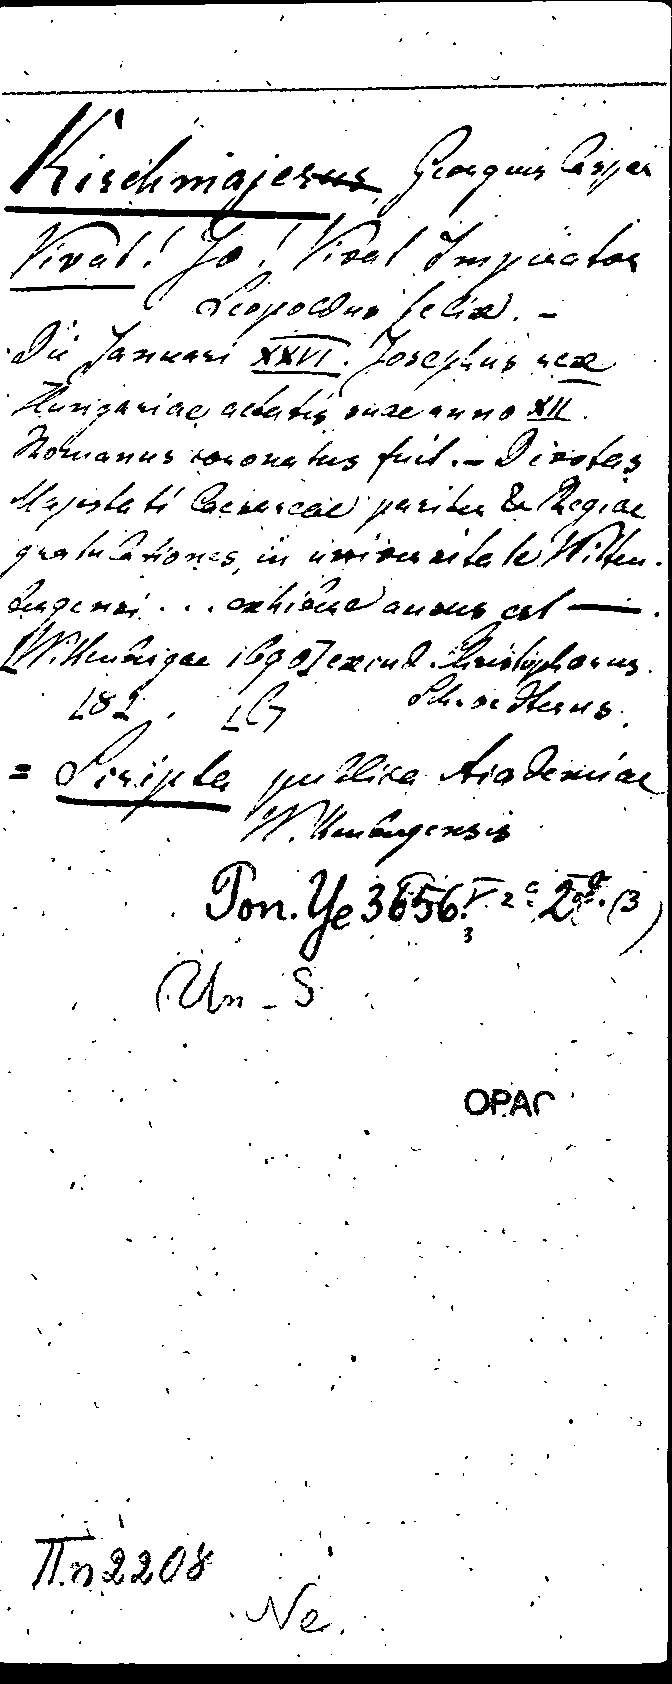 Kirchmajerus, Georgius Caspar
Vivat! Jo! Vivat Imperator
Leopoldus felix. -
Die Januari XXVI. Josephus rex
Hungariae aetatis suae anno XII.
Romanus coronatus fuit. - Devotas
Majestati Caesareae pariter & Regiae
gratulationes, in universitate Witten-
bergensi ... exhibere annus est —.
[Wittenbergae 1690] excud. Christophorus
Schroedterus.
= Scripta publica Academiae
Wittenbergensis
Pon. Ye 3656. 2º (3)
3
Un - S
OPAC
II n 2208
Ne.